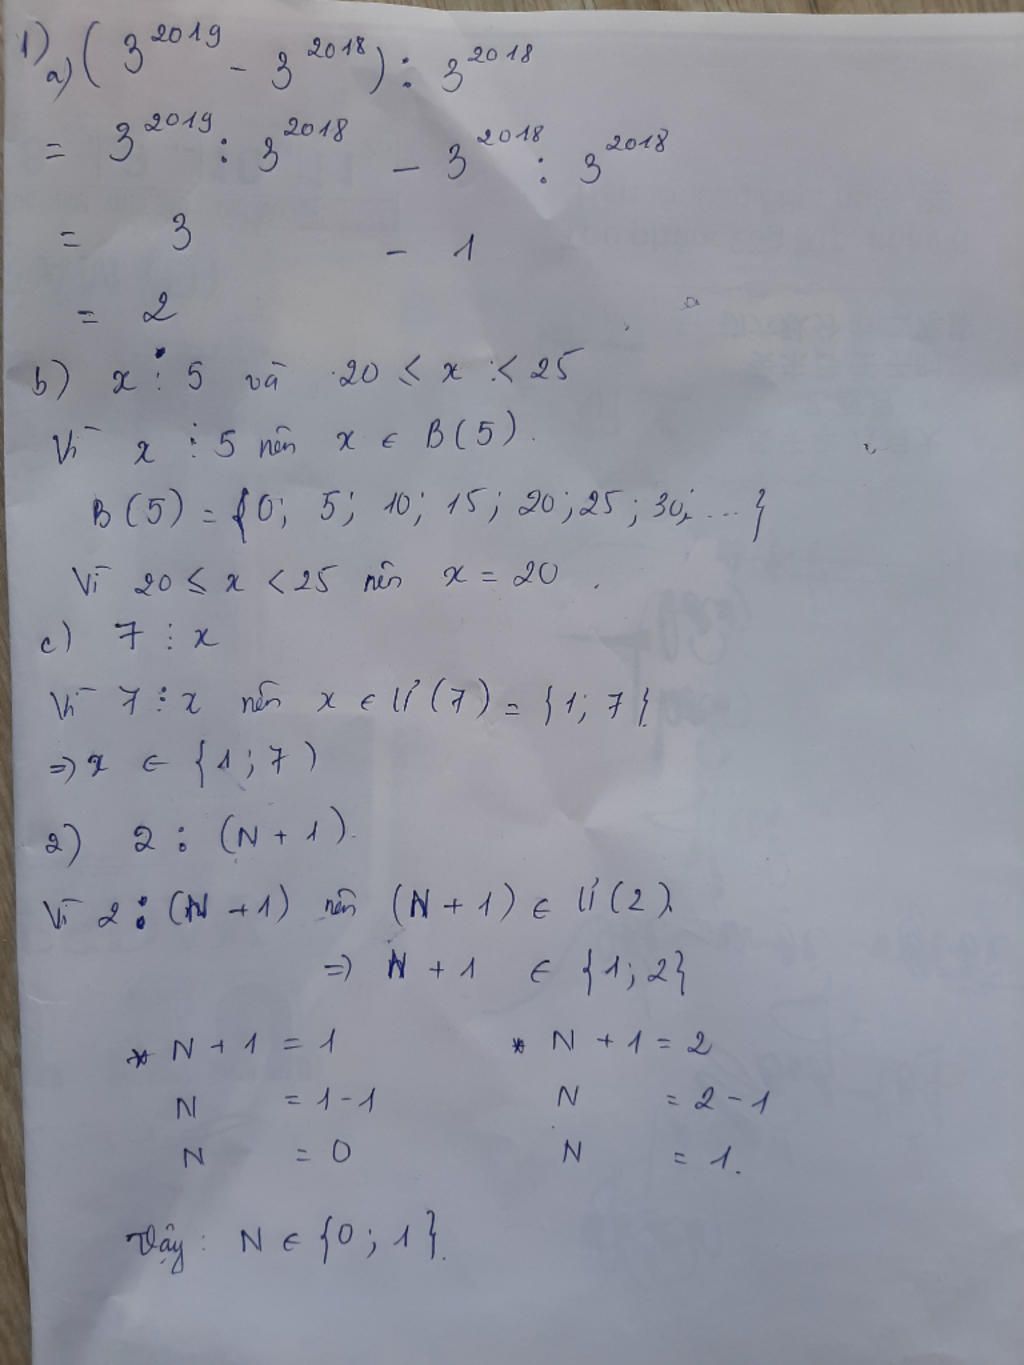 1) a) (3^2019 - 3^2018) : 3^2018
= 3^2019 : 3^2018 - 3^2018 : 3^2018
= 3 - 1
= 2
b) x ⋮ 5 và 20 ≤ x < 25
Vì x ⋮ 5 nên x ∈ B(5).
B(5) = {0; 5; 10; 15; 20; 25; 30; ...}
Vì 20 ≤ x < 25 nên x = 20.
c) 7 ⋮ x
Vì 7 ⋮ x nên x ∈ Ư(7) = {1; 7}
=> x ∈ {1; 7)
2) 2 ⋮ (N + 1).
Vì 2 ⋮ (N + 1) nên (N + 1) ∈ Ư(2).
=> N + 1 ∈ {1; 2}
* N + 1 = 1 * N + 1 = 2
N = 1 - 1 N = 2 - 1
N = 0 N = 1.
Vậy: N ∈ {0; 1}.